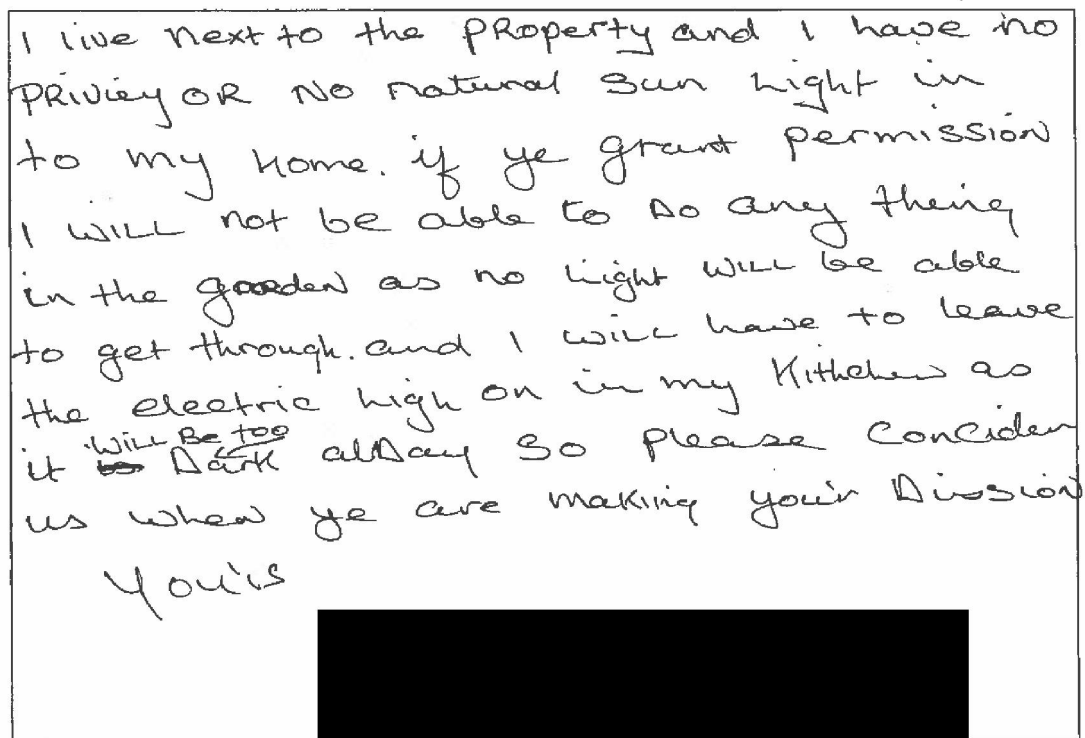 I live next to the PRoperty and I have no
PRIViey OR No natural Sun Light in
to my Home. if ye grant permission
I WILL not be able to Do any theing
in the gaarden as no Light WILL be able
to get through. and I will have to leave
the electric high on in my Kithchen as
it will Be too Dark alDay So please Conciden
us when ye are making you'r Dission
You'is